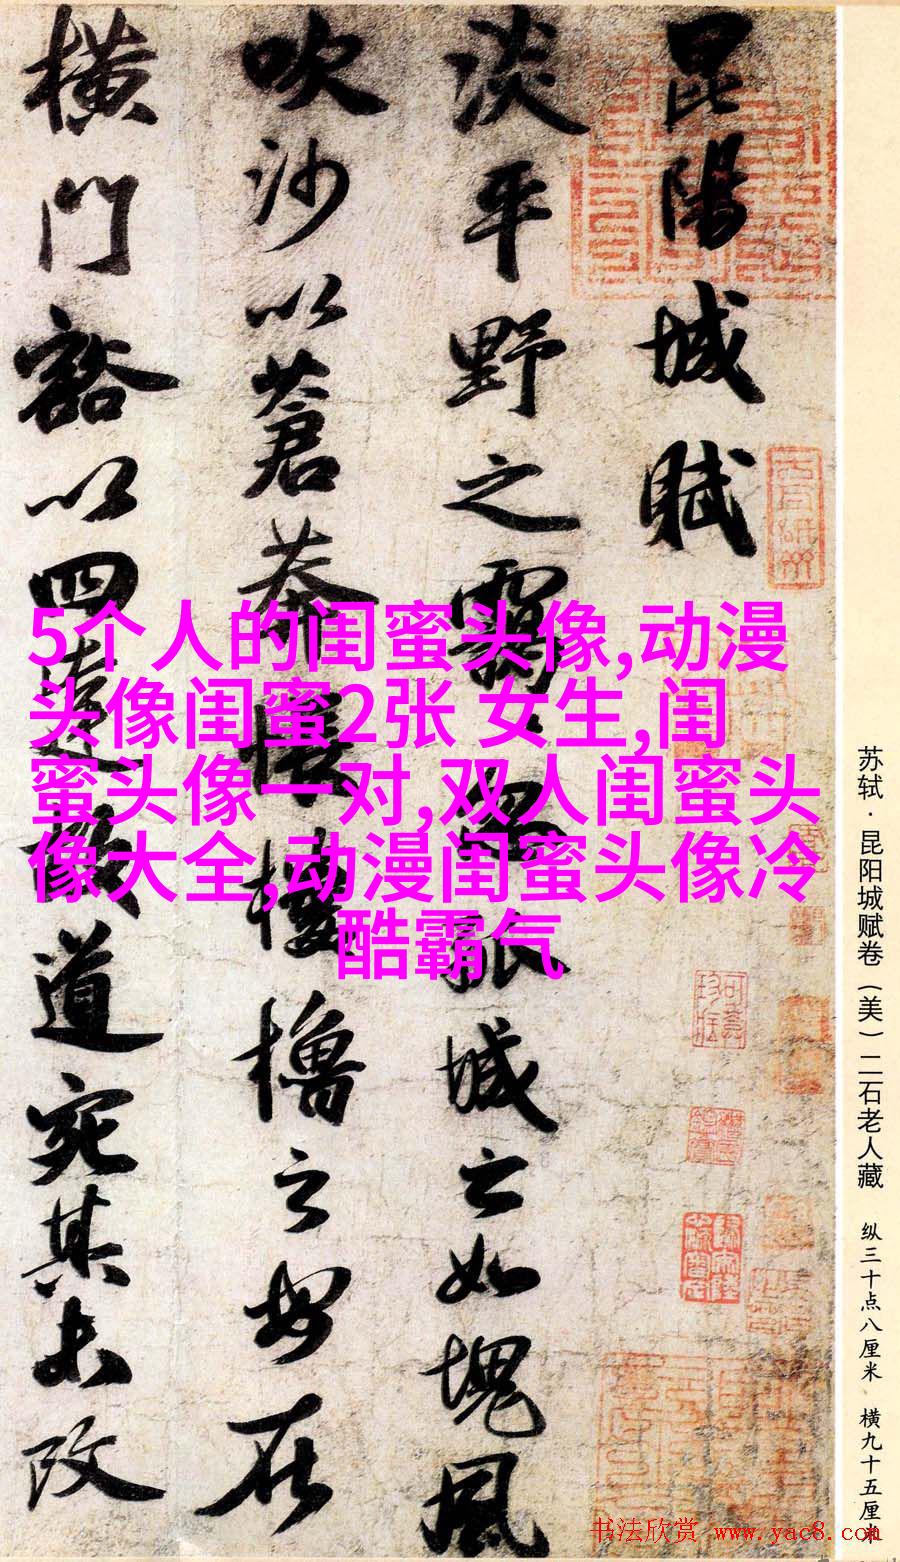 昆陽城賦
淡平野之靄靄忽孤城之如塊風
吹沙以蒼莽悵樓櫓之安在
橫門豁以四達故道宛其未改
5个人的闺蜜头像,动漫
头像闺蜜2张 女生,闺
蜜头像一对,双人闺蜜头
像大全,动漫闺蜜头像冷
酷霸气
苏轼·昆阳城赋卷(美)二石老人藏 纵三十点八厘米 横九十五厘米
书法欣赏 www.yac8.com